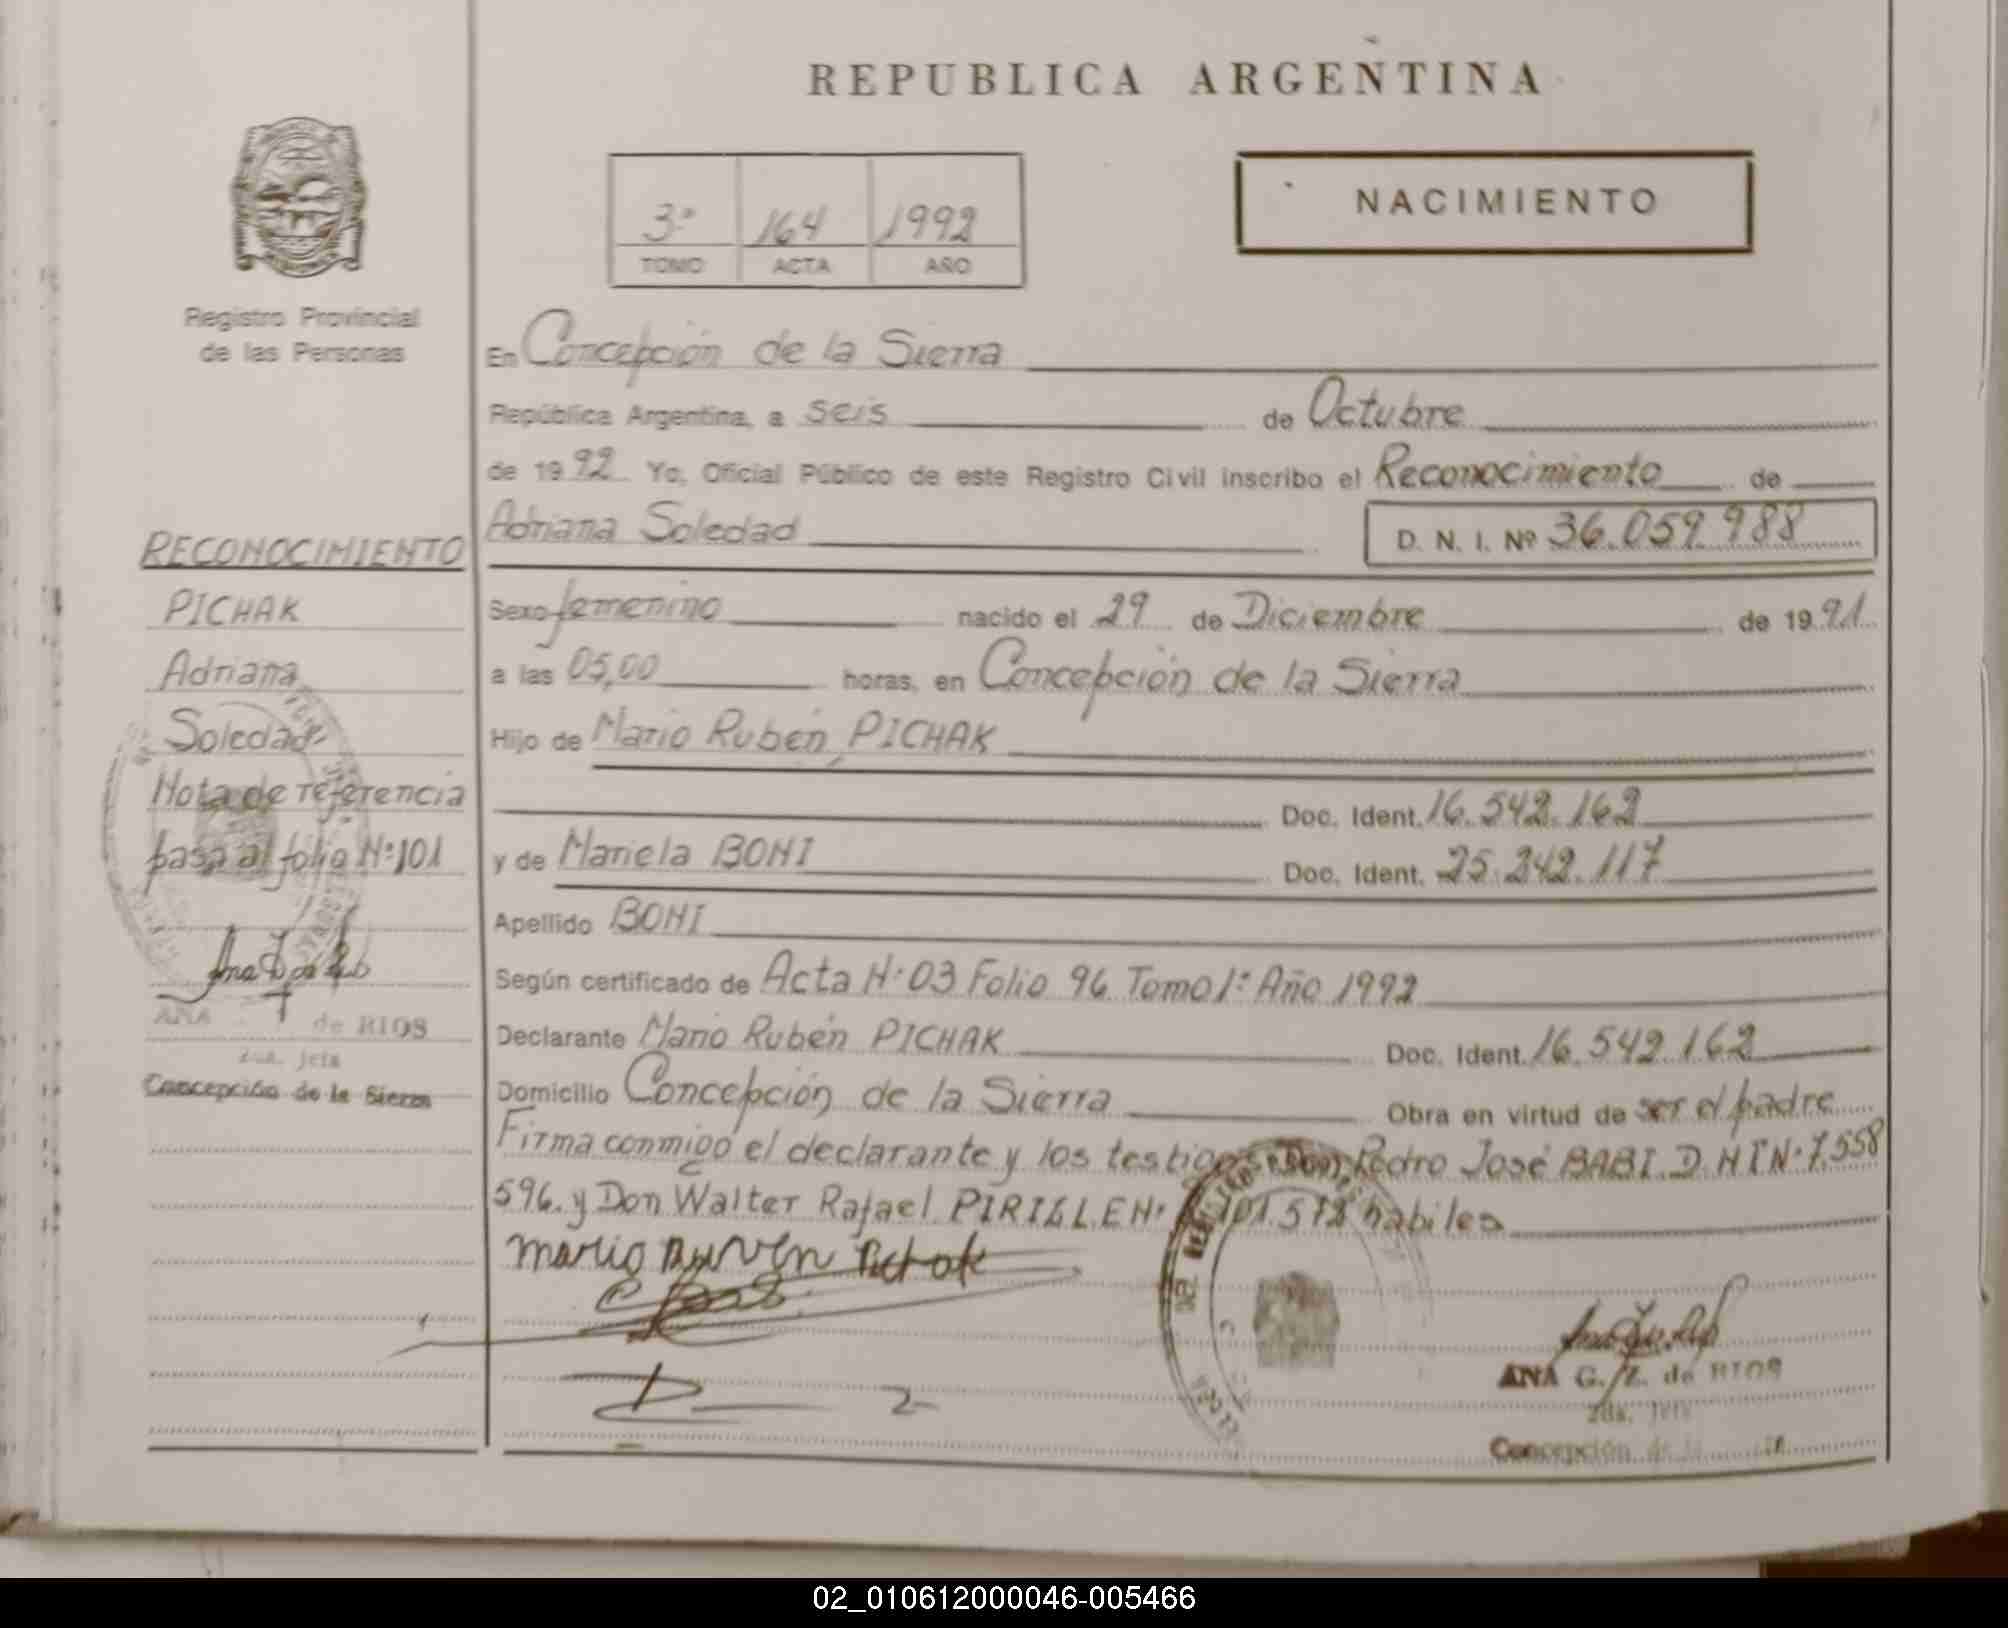 REPUBLICA ARGENTINA
3º 164 1992
TOMO ACTA AÑO
NACIMIENTO
Registro Provincial
de las Personas
RECONOCIMIENTO
PICHAK
Adriana
Soledad
Nota de referencia
pasa al folio Nº 101
ANA de RIOS
2da. Jefa
Concepción de la Sierra
En Concepción de la Sierra
República Argentina, a seis de Octubre
de 1992 Yo, Oficial Público de este Registro Civil inscribo el Reconocimiento de
Adriana Soledad D. N. I. Nº 36.059.988
Sexo femenino nacido el 29 de Diciembre de 1991
a las 05,00 horas, en Concepción de la Sierra
Hijo de Mario Rubén PICHAK
Doc. Ident. 16.542.162
y de Mariela BONI Doc. Ident. 25.242.117
Apellido BONI
Según certificado de Acta Nº 03 Folio 96 Tomo 1º Año 1992
Declarante Mario Rubén PICHAK Doc. Ident. 16.542.162
Domicilio Concepción de la Sierra Obra en virtud de ser el padre
Firma conmigo el declarante y los testigos Don Pedro José BABI. D.N.I Nº 7.558
596. y Don Walter Rafael habiles
Mario Ruven Pichak
ANA G. Z. de RIOS
2da. Jefa
Concepción de la
02_010612000046-005466